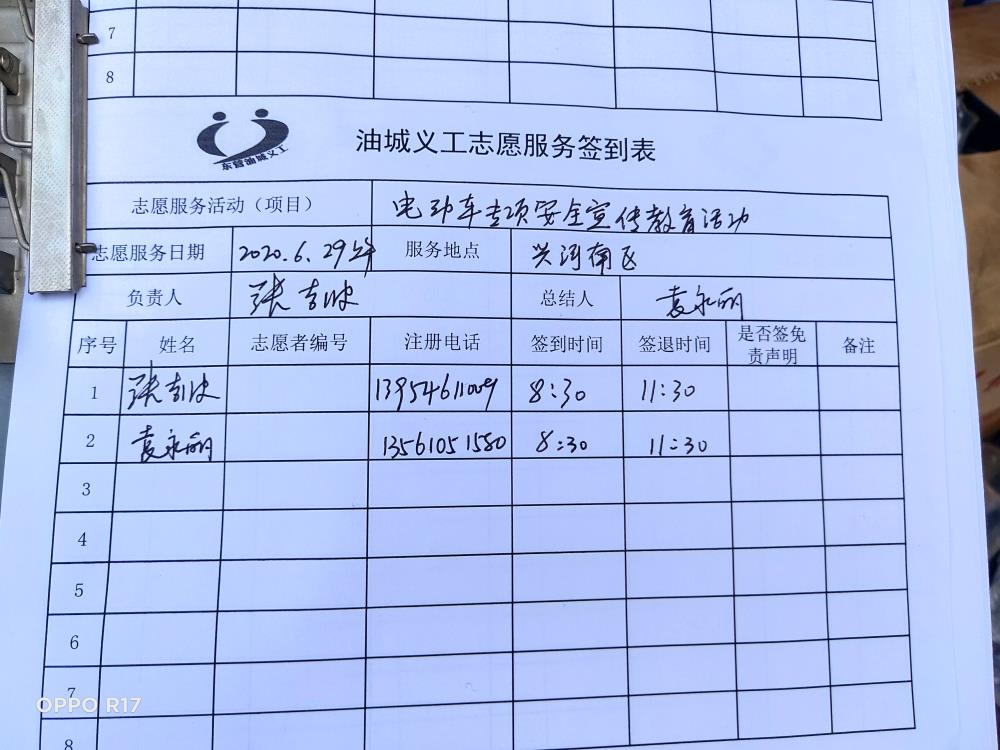 7
8
东营油城义工
油城义工志愿服务签到表
志愿服务活动（项目） 电动车专项安全宣传教育活动
志愿服务日期 2020.6.29上午 服务地点 兴河南区
负责人 张吉波 总结人 袁永丽
序号 姓名 志愿者编号 注册电话 签到时间 签退时间 是否签免责声明 备注
1 张吉波 13954611009 8:30 11:30
2 袁永丽 13561051580 8:30 11:30
3
4
5
6
7
8
OPPO R17